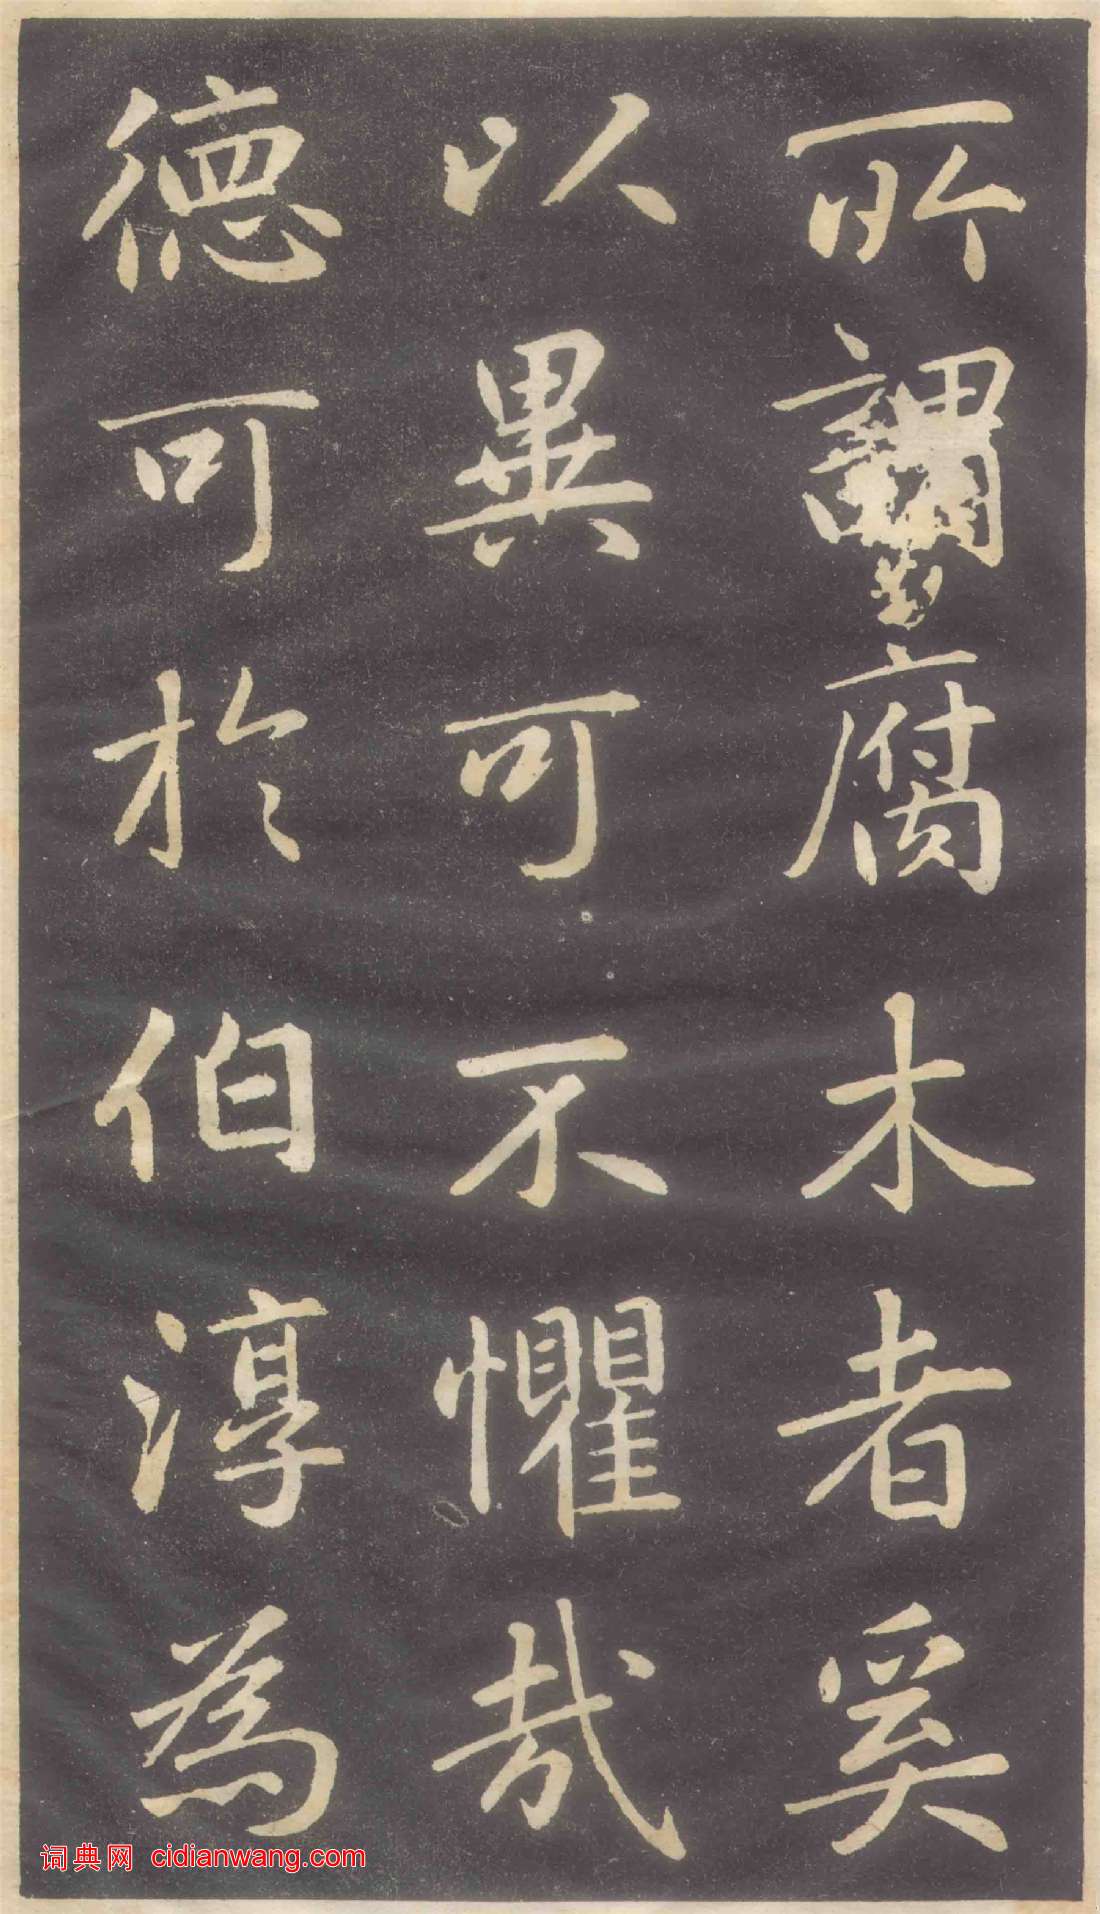 所謂腐木者奚
以異可不懼哉
德可於伯淳為
词典网 cidianwang.com